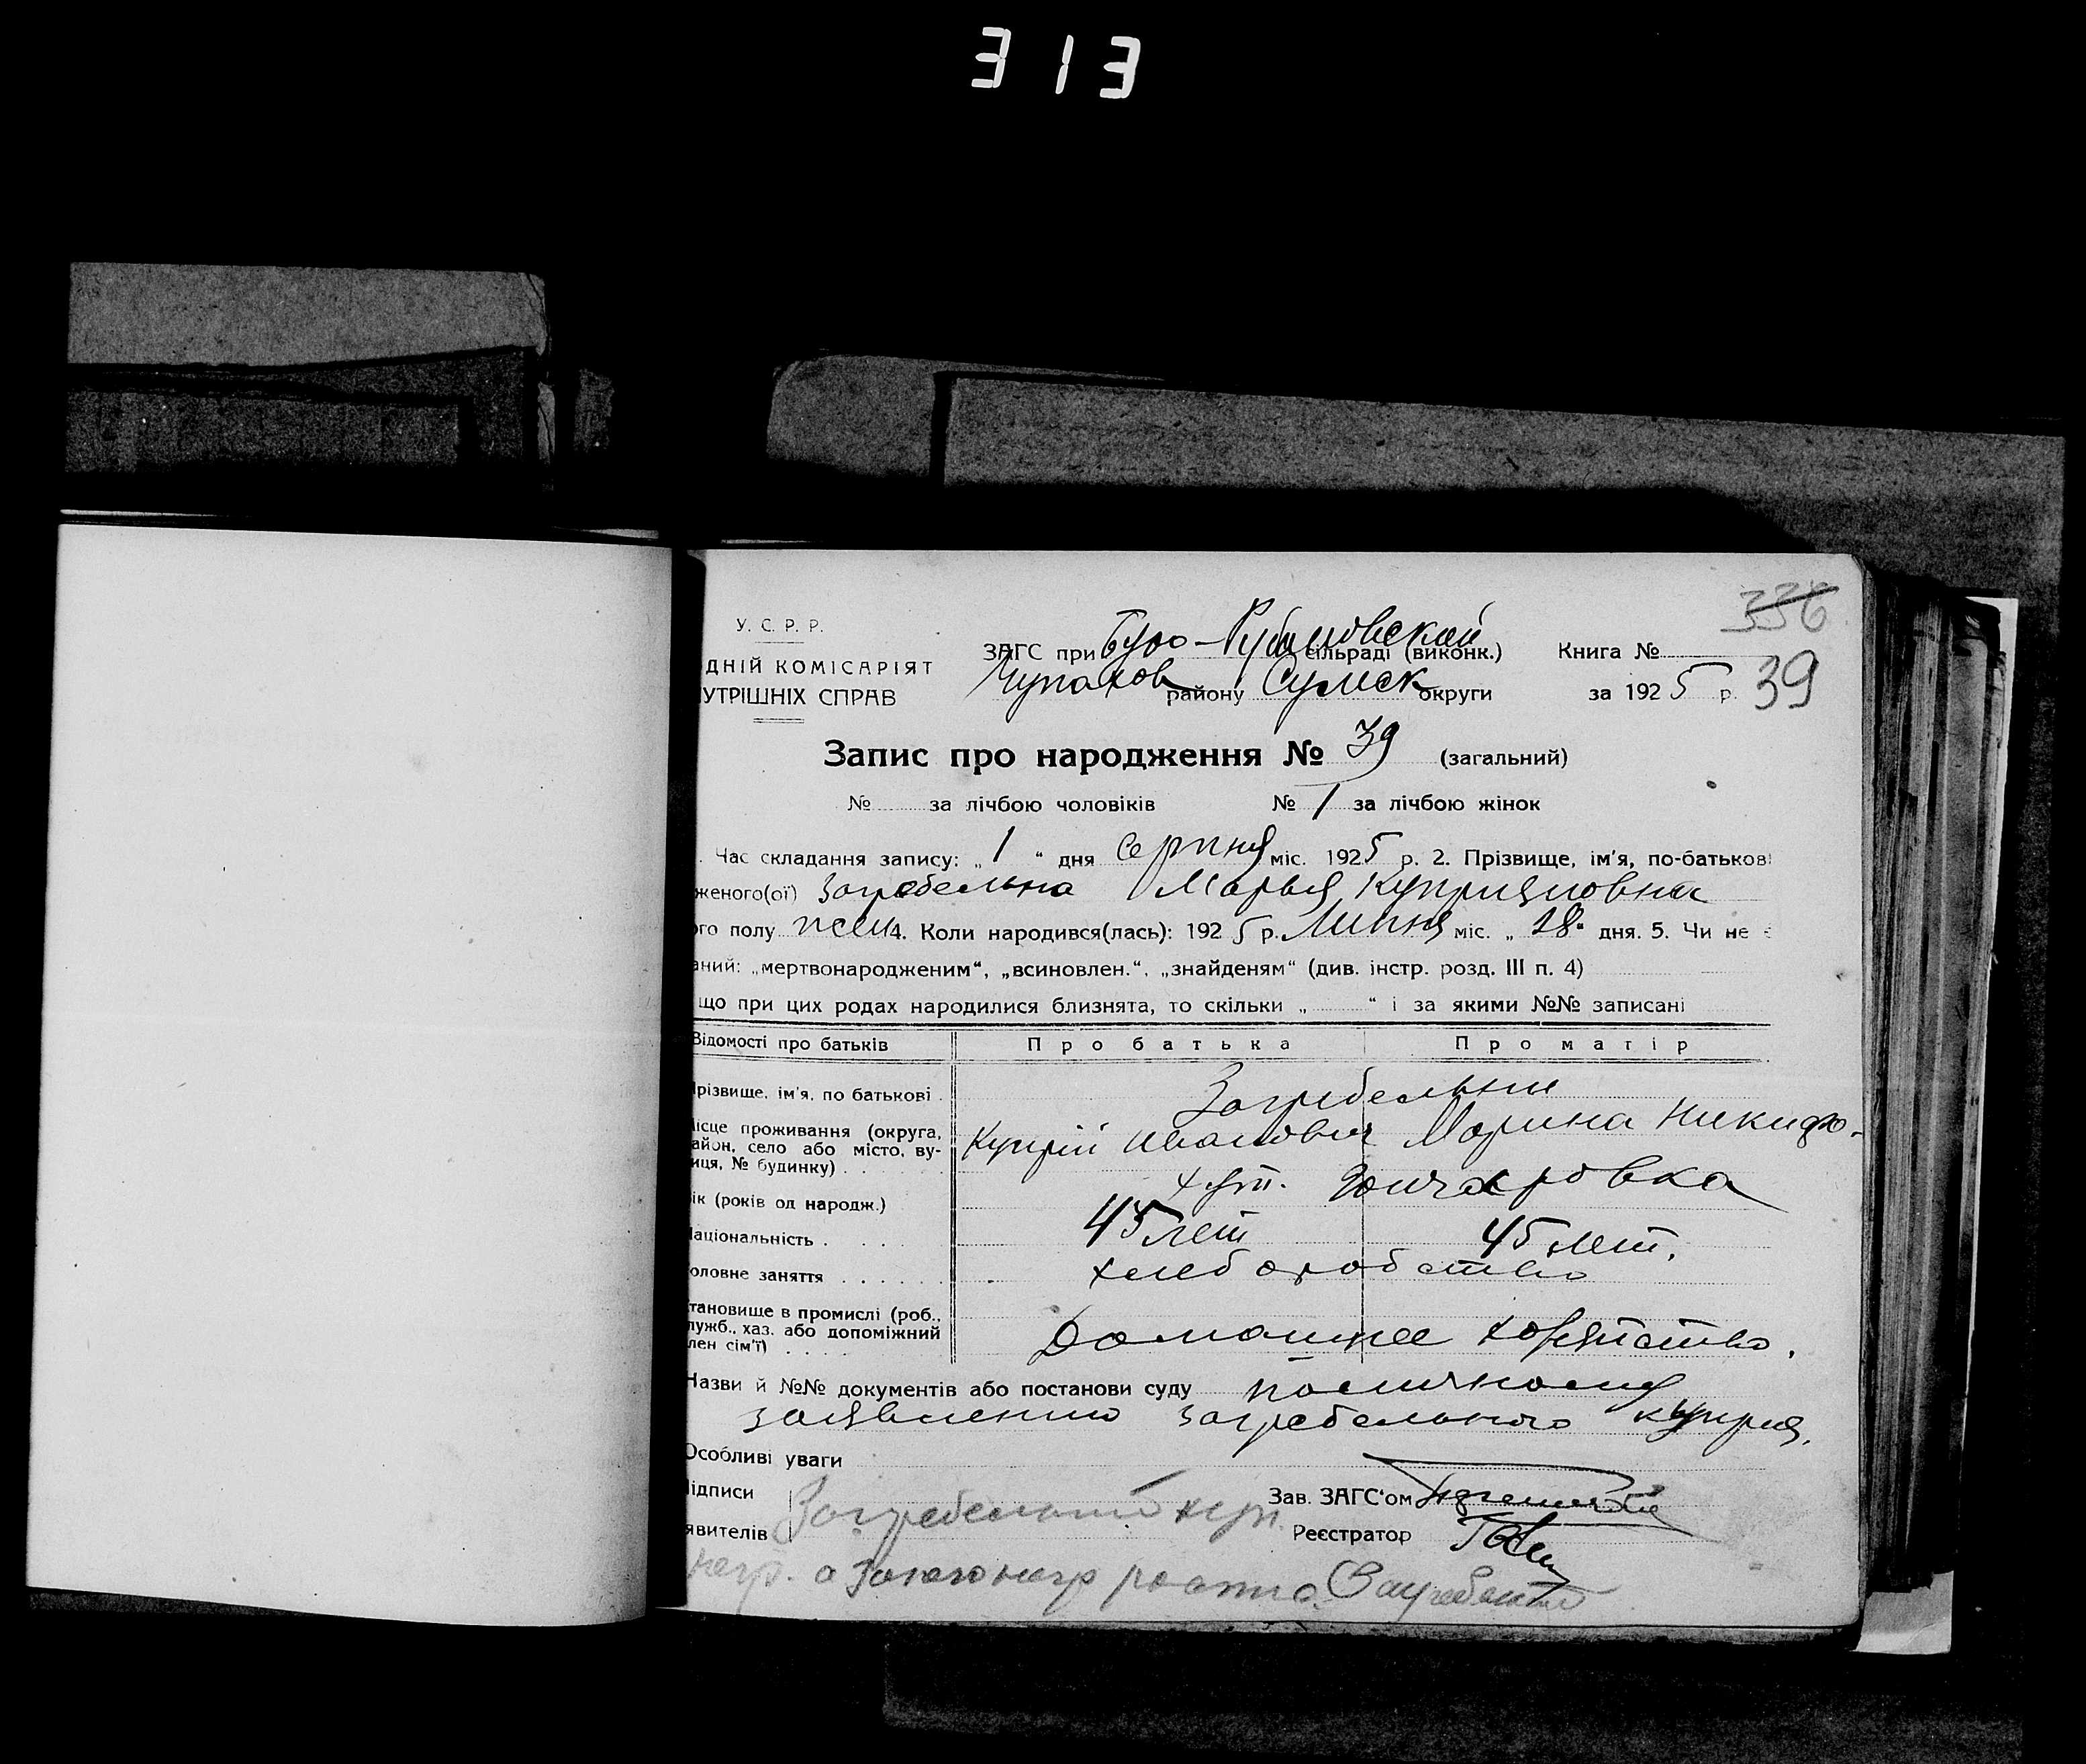 313
336
У. С. Р. Р.
ЗАГС при Будо-Рубановской сільраді (виконк.) Книга №
ДНІЙ КОМІСАРІЯТ
Чупахов району Сумск округи за 1925 р. 39
УТРІШНІХ СПРАВ
Запис про народження № 39 (загальний)
№ за лічбою чоловіків № 1 за лічбою жінок
. Час складання запису: „1“ дня Серпня міс. 1925 р. 2. Прізвище, ім'я, по-батькові
женого(ої) Загребельна Марья Куприяновна
ого полу жен 4. Коли народився(лась): 1925 р. Липня міс. „28“ дня. 5. Чи не є
аний: „мертвонародженим“, „всиновлен.“, „знайденям“ (див. інстр. розд. III п. 4)
що при цих родах народилися близнята, то скільки „ “ і за якими №№ записані
Відомості про батьків Про батька Про матір
різвище, ім'я, по батькові . Загребельни
ісце проживання (округа, Купрій Иванович Марина Никифо-
айон, село або місто, ву-
иця, № будинку) . . хут. Гончаровка
ік (років од народж.) 45 лет 45 лет.
аціональність . . .
оловне заняття . . . . . . хлеборобство
тановище в промислі (роб.,
лужб., хаз. або допоміжний Домашнее хозяйство.
лен сім'ї) . . . .
Назви й №№ документів або постанови суду по личному
заявлению Загребельного Куприя.
Особливі уваги
ідписи Загребельний Зав. ЗАГС'ом
явителів Реєстратор
негр. а за него негр Загребельний